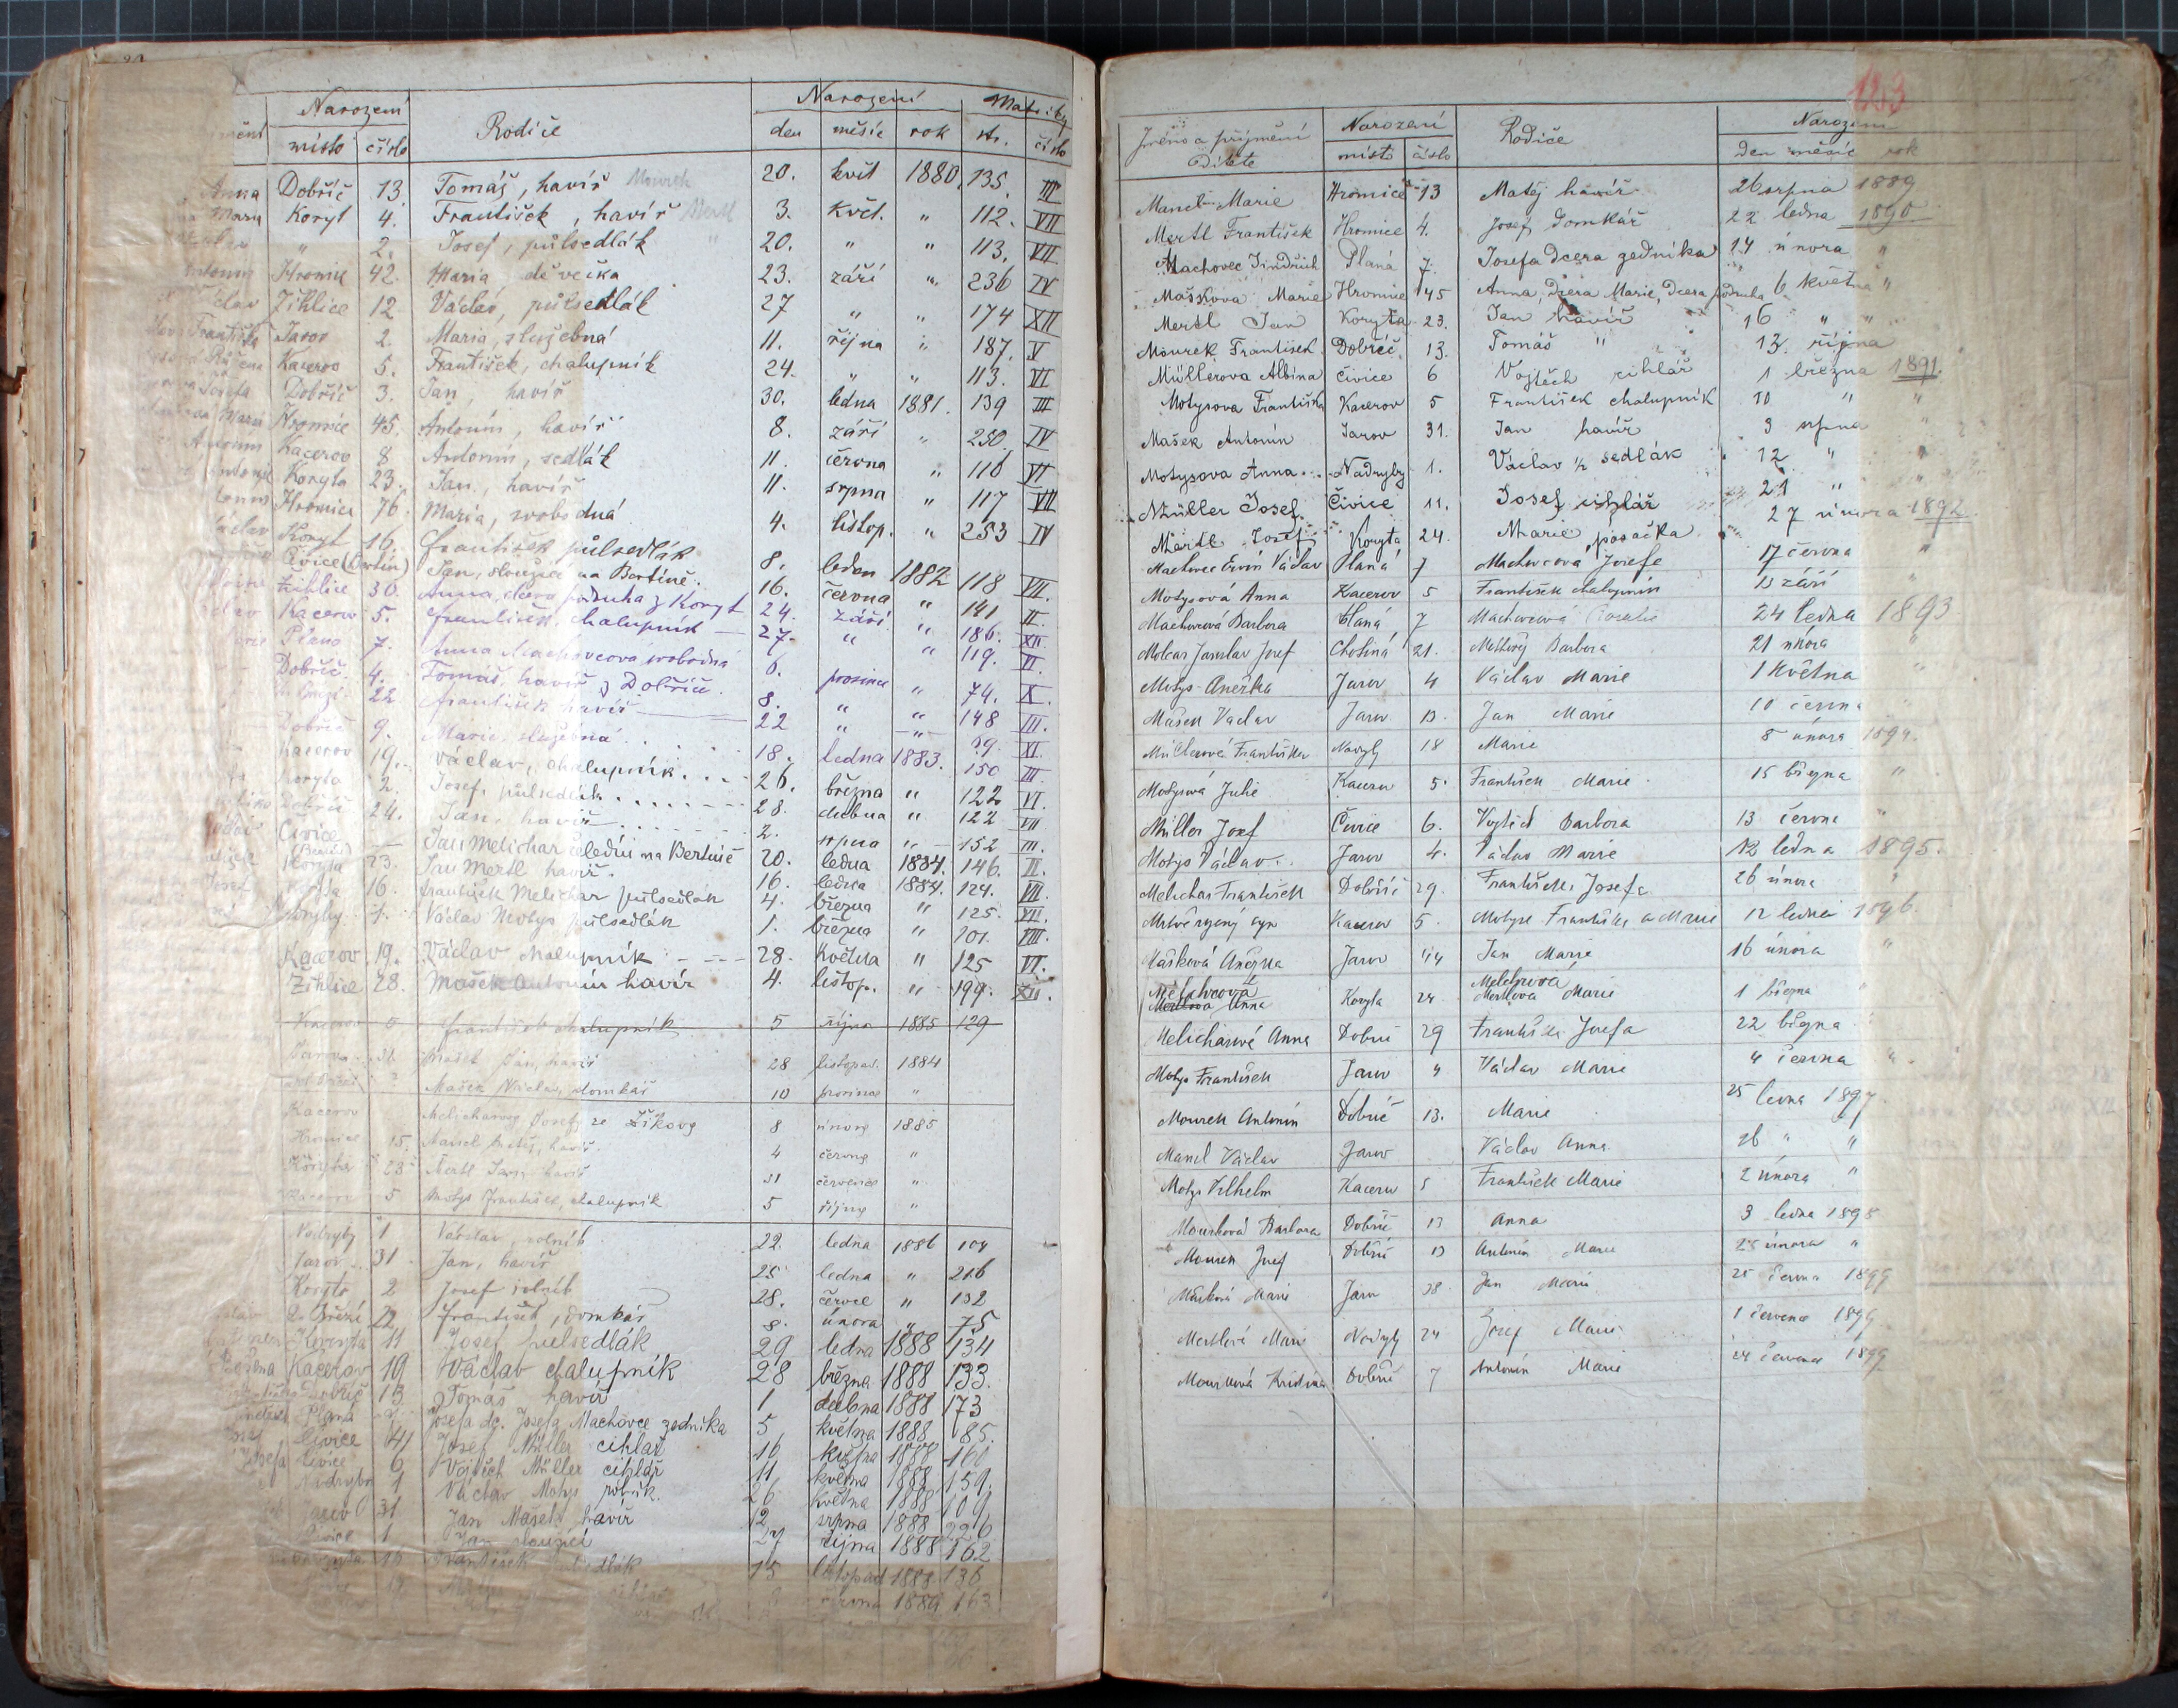 Narození Rodiče Narození Matriky
místo číslo den měsíc rok str. číslo
Anna Dobřič 13. Tomáš, havíř Mourek 20. květ 1880. 135. III
Maria Koryt 4. František, havíř Mertl 3. květ. " 112. VII
" 2. Josef, půlsedlák " 20. " " 113. VII
Antonín Hromic 42. Maria, děvečka 23. září " 236 IV
Žihlice 12. Václav, půlsedlák 27 " " 174 XII
Františka Jarov 2. Maria, služebná 11. října " 187. V
Růžena Kacerov 5. František, chalupník 24. " " 113. VI
Josefa Dobřič 3. Jan, havíř 30. ledna 1881. 139 III
Marie Hromice 45. Antonín, havíř 8. září " 250 IV
Antonín Kacerov 8 Antonín, sedlák 11. června " 116 VI
Antonie Koryta 23. Jan, havíř 11. srpna " 117 VII
Hromice 76. Maria, svobodná 4. listop. " 253 IV
Václav Koryt 16 František půlsedlák 8. leden 1882 118 VII.
Čivice (Bertín) Jan, sloužící na Bertíně. 16. června " 141 II.
Žihlice 30. Anna, dcera podruha z Koryt 24. září " 186. XII.
Kacerov 5. František, chalupník 27. " " 119. VI.
Plano 7. Anna Machovcová svobodná 6. prosince " 74. X.
Dobřič 4. Tomáš, havíř z Dobřiče. 8. " " 148 III.
22 František havíř 22 " " 69. XI.
Dobřič 9. Marie, služebná 18. ledna 1883. 150 III.
Kacerov 19. Václav, chalupník 26. března " 122 VI.
Koryta 2. Josef, půlsedlák 28. dubna " 122 VII
Dobřič 24. Jan, havíř 2. srpna " 152 III.
Čivice (Bertín) Jan Melichar čeledín na Bertině 20. ledna 1884. 146. II.
Koryta 23. Jan Mertl havíř. 16. ledna 1884. 124. VII.
Josef Koryta 16. František Melichar půlsedlák 4. března " 125. VII.
1. Václav Motys půlsedlák 1. března " 101. VIII.
Kacerov 19. Václav chalupník 28. května " 125 VI.
Žihlice 28. Mašek Antonín havíř 4. listop. " 199. XII.
Kacerov 5 František chalupník 5 října 1885 129
Jarova 31 Mašek Jan, havíř 28 listopad. 1884
Mašek Václav, domkář 10 prosince "
Kacerov Melicharovy Josefy ze Žikovy 8 února 1885
Hromice 15. Mancl Matěj, havíř. 4 června "
Koryta 23 Mertl Jan, havíř 31 července "
Kacerov 5 Motys František, chalupník 5 října "
Nadryby 1 Václav, rolník 22. ledna 1886 104
Jarov 31. Jan, havíř 25 ledna " 216
Koryta 2 Josef rolník 28. červce " 132
Březí 22 František, domkář 8. února " 75
Koryta 11 Josef pulsedlák 29 ledna 1888 134
Kacerov 19 Václav chalupník 28 března 1888 133.
Dobřič 13 Tomáš havíř 1 dubna 1888 173
Planá Josefa dc. Josefa Machovce zedníka 5 května 1888 85.
Čivice 41 Josef Müller cihlář 16 května 1888 160
Josefa Čivice 6 Vojtěch Müller cihlář 11 května 1888 159.
Nadryby 1 Václav Motys rolník. 26 května 1888 109
Jarov 31 Jan Mašek havíř 12 srpna 1888 226
Čivice 1 Jan sloužící 27 října 1888 162
Koryta 16 František půlsedlák 15 listopad 1888 136
června 1889 163
183
Jméno a příjmení Dítěte Narození Rodiče Narození
místo číslo Den měsíc rok
Mancl Marie Hromice 13 Matěj havíř 26 srpna 1889
Mertl František Hromice 4. Josef Domkář 22 ledna 1890
Machovec Jindřich Planá 7. Josefa Dcera zedníka 14 února "
Mašková Marie Hromice 45 Anna, Dcera Marie, Dcera podruha 6 května "
Mertl Jan Koryta 23. Jan havíř 16 " "
Mourek František Dobříč 13. Tomáš " 13. října
Müllerova Albina Čivice 6 Vojtěch cihlář 1 března 1891.
Motysova Františka Kacerov 5 František chalupník 10 " "
Mašek Antonín Jarov 31. Jan havíř 3 srpna "
Motysova Anna Nadryby 1. Václav ½ sedlák 12 " "
Müller Josef. Čivice 11. Josef cihlář 21 " "
Mertl Josef Koryta 24. Marie posačka 27 února 1892.
Machovec Ervín Václav Planá 7 Machovcová Josefa 17 června "
Motysová Anna Kacerov 5 František chalupník 13 září "
Machovcová Barbora Planá 7 Machovcová Rosalie 24 ledna 1893
Molcar Jaroslav Josef Chotiná 21. Matěj Barbora 21 února "
Motys Anežka Jarov 4 Václav Marie 1 Května "
Mašek Václav Jarov 13. Jan Marie 10 června "
Müllerová Františka Nadryby 18 Marie 8 února 1894.
Motysová Julie Kacerov 5. František Marie 15 března "
Müller Josef Čivice 6. Vojtěch Barbora 13 června "
Motys Václav Jarov 4. Václav Marie 12 ledna 1895.
Melichar František Dobříč 29. František Josefa 26 února "
Mrtvě rozený syn Kacerov 5. Motys František a Marie 12 ledna 1896.
Mašková Anežka Jarov 44 Jan Marie 16 února "
Melchrová Mertlova Anna Koryta 24 Melchrova Mertlova Marie 1 března "
Melicharová Anna Dobříč 29 František Josefa 22 března "
Motys František Jarov 4 Václav Marie 4 června "
Mourek Antonín Dobříč 13. Marie 25 ledna 1897
Mancl Václav Jarov Václav Anna 26 " "
Motys Vilhelm Kacerov 5 František Marie 2 února "
Mourková Barbora Dobříč 13 Anna 3 ledna 1898
Mourek Josef Dobříč 13 Antonín Marie 23 února "
Mašková Marie Jarov 38 Jan Marie 25 června 1899
Mertlová Marie Nadryby 24 Josef Marie 1 července 1899
Mourková Kristina Dobříč 7 Antonín Marie 24 července 1899